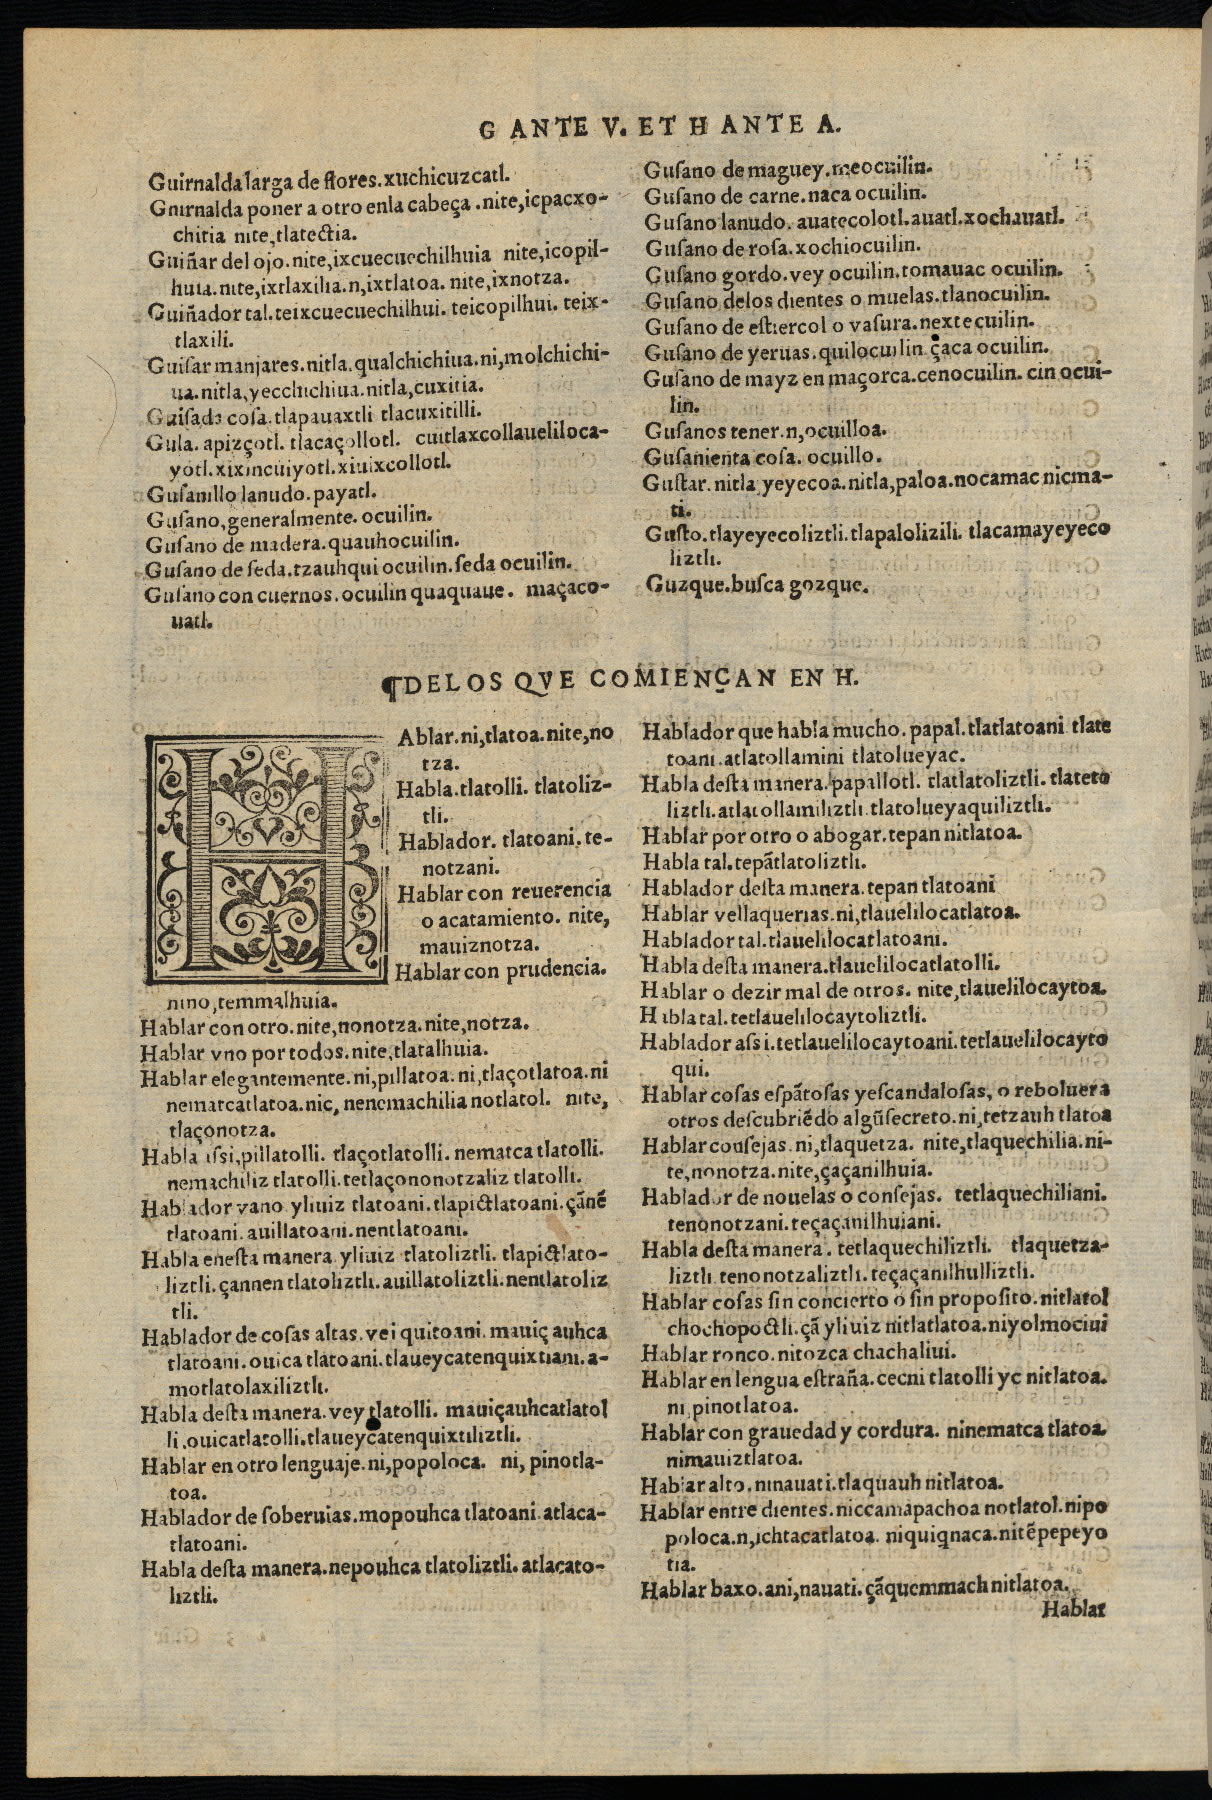 G ANTE V. ET H ANTE A.
Guirnalda larga de flores.xuchicuzcatl.
Gnirnalda poner a otro enla cabeça .nite,icpacxo-
chitia nite,tlatectia.
Guiñar del ojo.nite,ixcuecuechilhuia nite,icopil-
huia.nite,ixtlaxilia.n,ixtlatoa. nite,ixnotza.
Guiñador tal.teixcuecuechilhui. teicopilhui. teix-
tlaxili.
Guisar manjares.nitla,qualchichiua.ni,molchichi-
ua.nitla,yecchichiua.nitla,cuxitia.
Guisada cosa.tlapauaxtli tlacuxitilli.
Gula. apizçotl. tlacaçollotl. cuitlaxcollaueliloca-
yotl.xixincuiyotl.xiuixcollotl.
Gusanillo lanudo.payatl.
Gusano,generalmente. ocuilin.
Gusano de madera.quauhocuilin.
Gusano de seda.tzauhqui ocuilin.seda ocuilin.
Gusano con cuernos.ocuilin quaquaue. maçaco-
uatl.
Gusano de maguey.meocuilin.
Gusano de carne.naca ocuilin.
Gusano lanudo. auatecolotl.auatl.xochauatl.
Gusano de rosa.xochiocuilin.
Gusano gordo.vey ocuilin.tomauac ocuilin.
Gusano delos dientes o muelas.tlanocuilin.
Gusano de estiercol o vasura.nextecuilin.
Gusano de yeruas.quilocuilin çaca ocuilin.
Gusano de mayz en maçorca.cenocuilin. cin ocui-
lin.
Gusanos tener.n,ocuilloa.
Gusanienta cosa. ocuillo.
Gustar.nitla,yeyecoa.nitla,paloa.nocamac nicma-
ti.
Gusto.tlayeyecoliztli.tlapalolizili. tlacamayeyeco
liztli.
Guzque.busca gozque.
¶DELOS QVE COMIENÇAN EN H.
HAblar.ni,tlatoa.nite,no
tza.
Habla.tlatolli. tlatoliz-
tli.
Hablador. tlatoani. te-
notzani.
Hablar con reuerencia
o acatamiento. nite,
mauiznotza.
Hablar con prudencia.
nino,temmalhuia.
Hablar con otro.nite,nonotza.nite,notza.
Hablar vno por todos.nite,tlatalhuia.
Hablar elegantemente.ni,pillatoa.ni,tlaçotlatoa.ni
nematcatlatoa.nic, nenemachilia notlatol. nite,
tlaçonotza.
Habla assi,pillatolli. tlaçotlatolli. nematca tlatolli.
nemachiliz tlatolli.tetlaçononotzaliz tlatolli.
Hablador vano yliuiz tlatoani.tlapictlatoani.çãnẽ
tlatoani. auillatoani.nentlatoani.
Habla enesta manera yliuiz tlatoliztli. tlapictlato-
liztli.çannen tlatoliztli.auillatoliztli.nentlatoliz
tli.
Hablador de cosas altas.vei quitoani.mauiçauhca
tlatoani.ouica tlatoani.tlaueycatenquixtiani.a-
motlatolaxiliztli.
Habla desta manera.vey tlatolli. mauiçauhcatlatol
li.ouicatlatolli.tlaueycatenquixtiliztli.
Hablar en otro lenguaje.ni,popoloca. ni, pinotla-
toa.
Hablador de soberuias.mopouhca tlatoani.atlaca-
tlatoani.
Habla desta manera.nepouhca tlatoliztli.atlacato-
liztli.
Hablador que habla mucho.papal.tlatlatoani tlate
toani.atlatollamini tlatolueyac.
Habla desta manera.papallotl. tlatlatoliztli.tlateto
liztli.atlatollamiliztli.tlatolueyaquiliztli.
Hablar por otro o abogar.tepan nitlatoa.
Habla tal.tepãtlatoliztli.
Hablador desta manera.tepan tlatoani
Hablar vellaquerias.ni,tlauelilocatlatoa.
Hablador tal.tlauelilocatlatoani.
Habla desta manera.tlauelilocatlatolli.
Hablar o dezir mal de otros. nite,tlauelilocaytoa.
Habla tal.tetlauelilocaytoliztli.
Hablador assi.tetlauelilocaytoani.tetlauelilocayto
qui.
Hablar cosas espãtosas yescandalosas, o reboluera
otros descubriẽdo algũsecreto.ni,tetzauh tlatoa
Hablar consejas.ni,tlaquetza. nite,tlaquechilia.ni-
te,nonotza.nite,çaçanilhuia.
Hablador de nouelas o consejas. tetlaquechiliani.
tenonotzani.teçaçanilhuiani.
Habla desta manera. tetlaquechiliztli. tlaquetza-
liztli.tenonotzaliztli.teçaçanilhuiliztli.
Hablar cosas sin concierto o sin proposito.nitlatol
chochopoctli.çã yliuiz nitlatlatoa.niyolmociui
Hablar ronco.nitozca chachaliui.
Hablar en lengua estraña.cecni tlatolli yc nitlatoa.
ni,pinotlatoa.
Hablar con grauedad y cordura. ninematca tlatoa.
nimauiztlatoa.
Hablar alto.ninauati.tlaquauh nitlatoa.
Hablar entre dientes.niccamapachoa notlatol.nipo
poloca.n,ichtacatlatoa. niquiqnaca.nitẽpepeyo
tia.
Hablar baxo.ani,nauati.çãquemmach nitlatoa.
Hablar